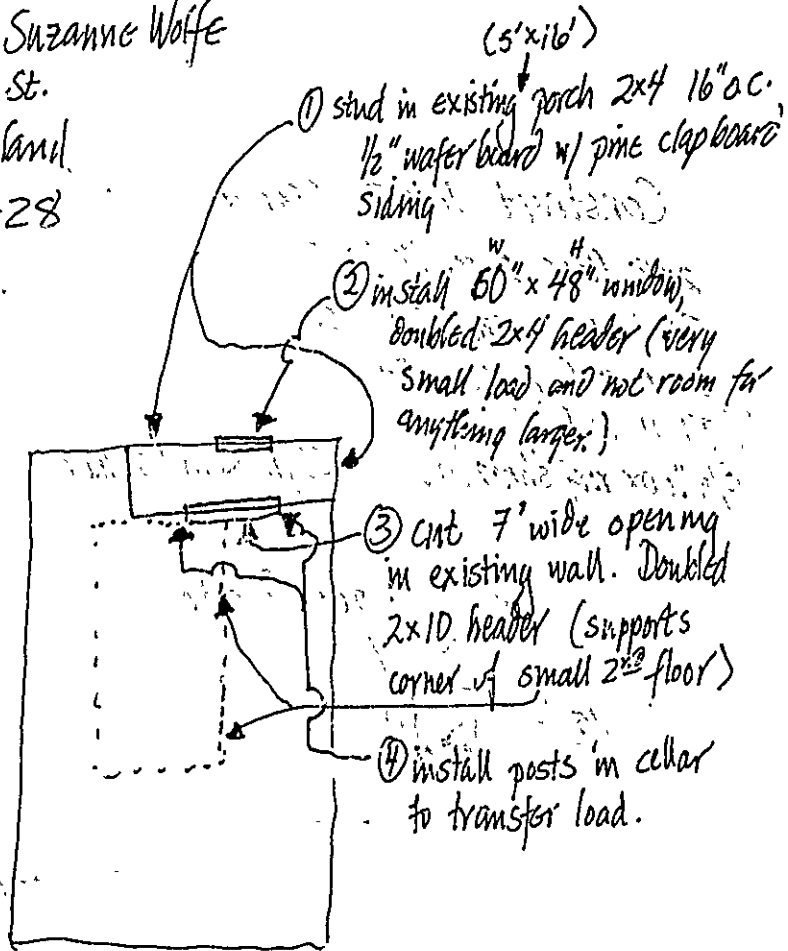 Suzanne Wolfe
St.
land
28
(5'x16')
① stud in existing porch 2x4 16" o.c.
1/2" wafer board w/ pine clapboard
siding
W H
② install 60" x 48" window,
doubled 2x4 header (very
small load and not room for
anything larger.)
③ cut 7' wide opening
in existing wall. Doubled
2x10 header (supports
corner of small 2nd floor)
④ install posts in cellar
to transfer load.